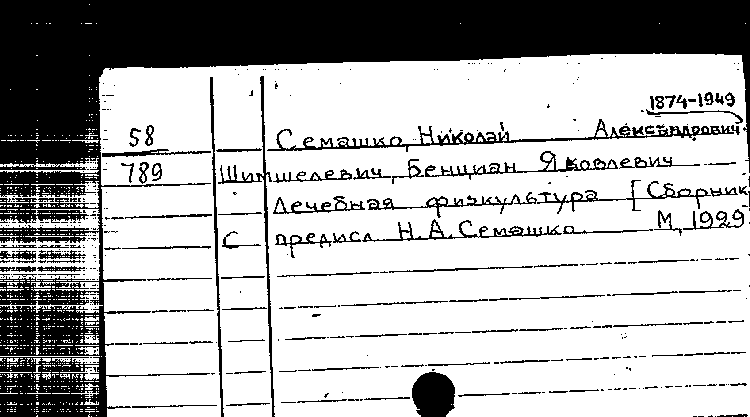 1874-1949
58 Семашко, Николай Александрович
789 Шимшелевич, Бенциан Яковлевич
Лечебная физкультура [Сборник
С предисл. Н.А. Семашко. М, 1929